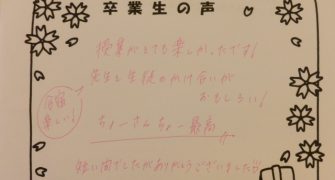 卒業生の声
授業がとても楽しかったです!
先生と生徒のかけ合いが
おもしろい!
合宿
楽しい!
ちょーさんちょー最高
短い間でしたがありがとうございました!!